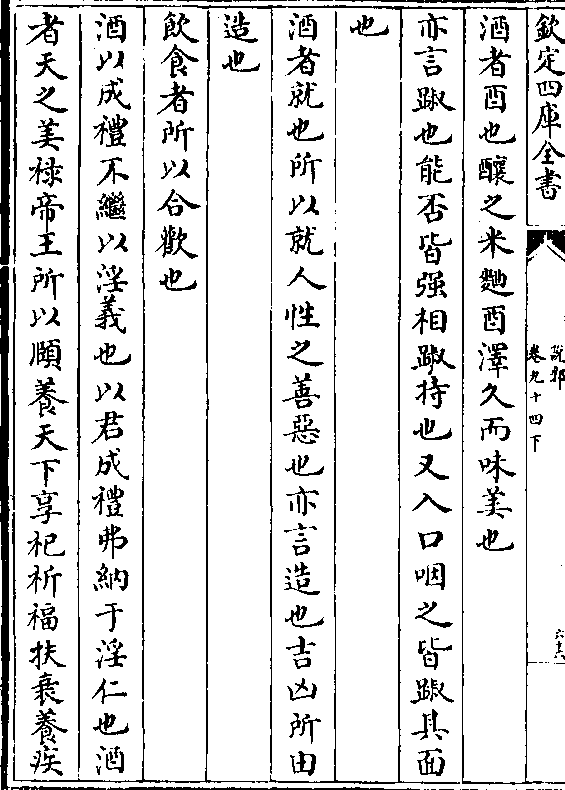 欽定四庫全書
說郛
卷九十四下
酒者酉也釀之米麴酉澤久而味美也
亦言踧也能否皆强相踧持也又入口咽之皆踧其面
也
酒者就也所以就人性之善惡也亦言造也吉凶所由
造也
飲食者所以合歡也
酒以成禮不繼以淫義也以君成禮弗納于淫仁也酒
者天之美祿帝王所以頤養天下享祀祈福扶衰養疾